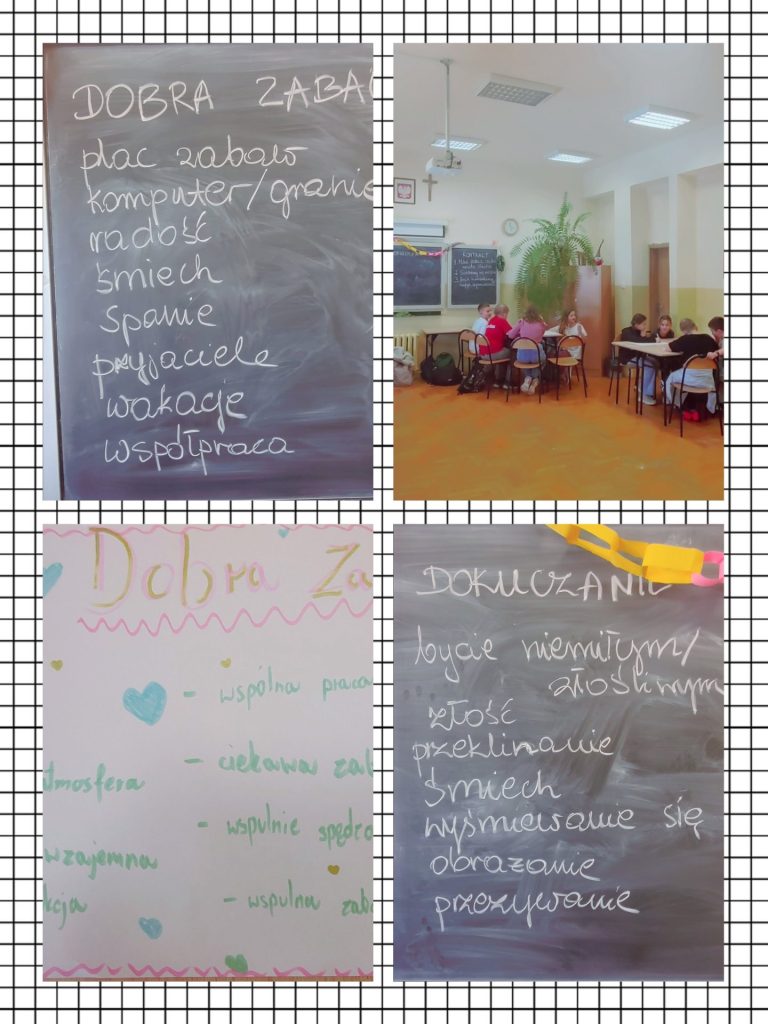 DOBRA ZABA
plac zabaw
komputer/granie
radość
śmiech
spanie
przyjaciele
wakacje
współpraca
KONTRAKT
Dobra Za
- wspólna praca
- ciekawa zab
tmosfera
- wspulnie spędza
wzajemna
- wspulna zab
kcja
DOKUCZANIE
bycie niemiłym/
złośliwym
złość
przeklinanie
śmiech
wyśmiewanie się
obrażanie
przezywanie